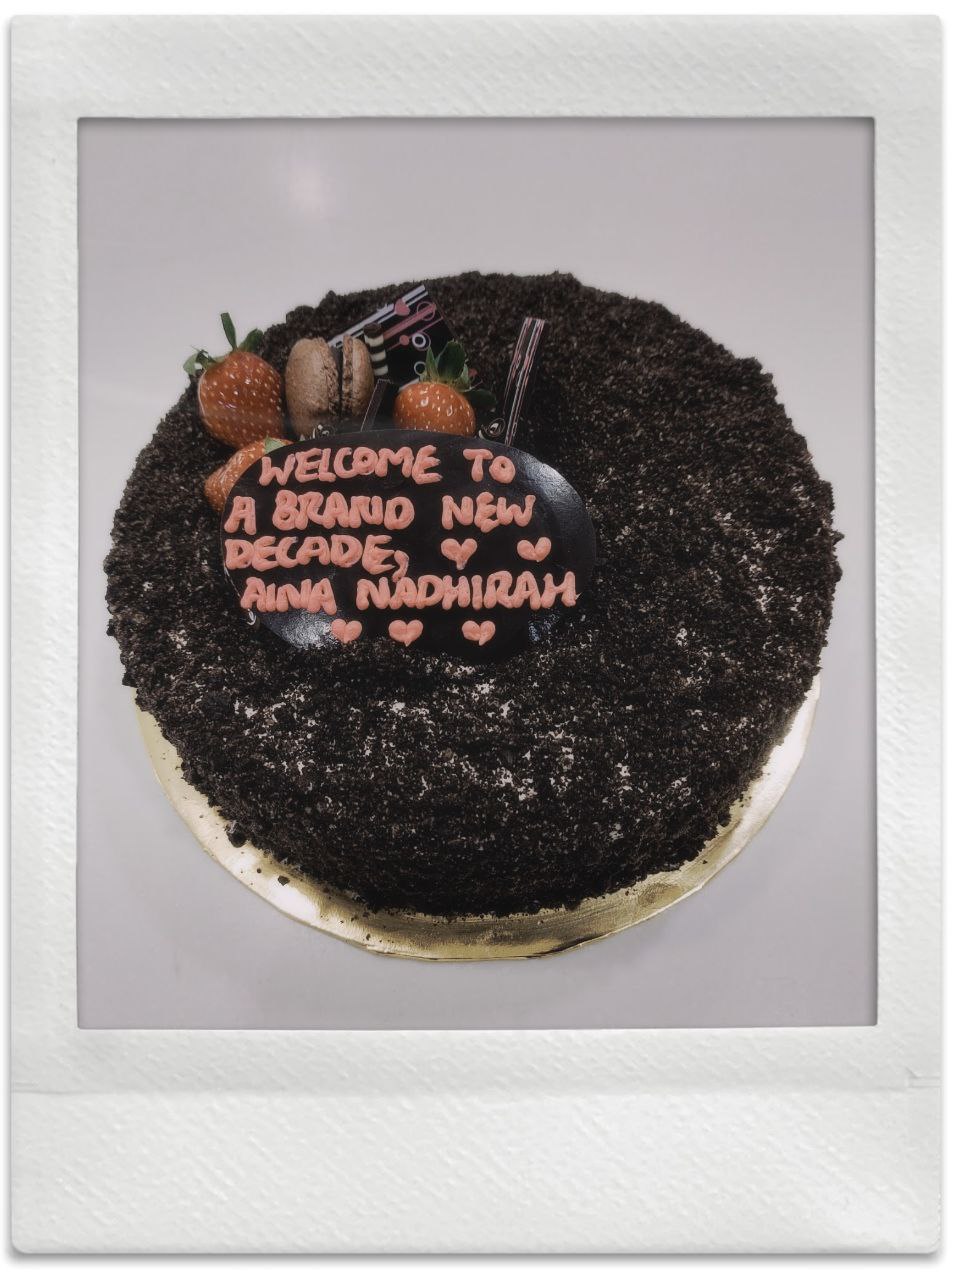 WELCOME TO
A BRAND NEW
DECADE, ♥ ♥
AINA NADHIRAH
♥ ♥ ♥